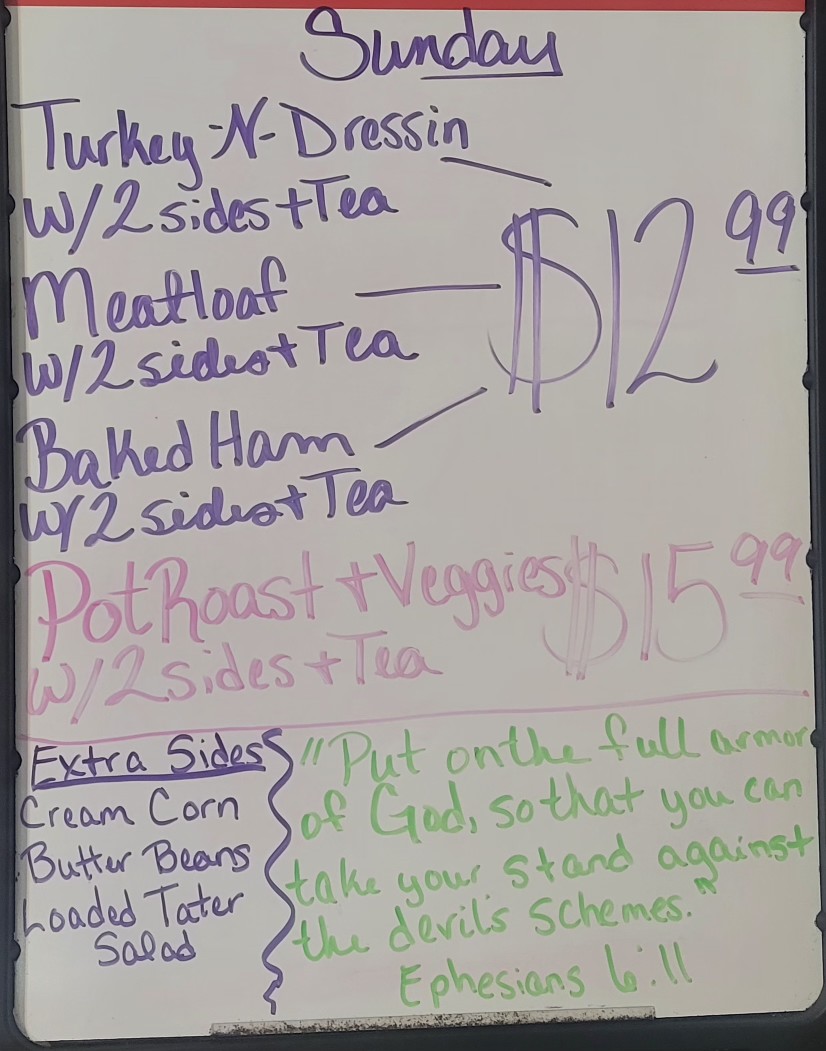 Sunday
Turkey-N-Dressin
W/2 sides + Tea
$12.99
Meatloaf
W/2 sides + Tea
Baked Ham
W/2 sides + Tea
Pot Roast + Veggies $15.99
W/2 sides + Tea
Extra Sides
Cream Corn
Butter Beans
Loaded Tater
Salad
"Put on the full armor
of God, so that you can
take your stand against
the devil's schemes."
Ephesians 6:11